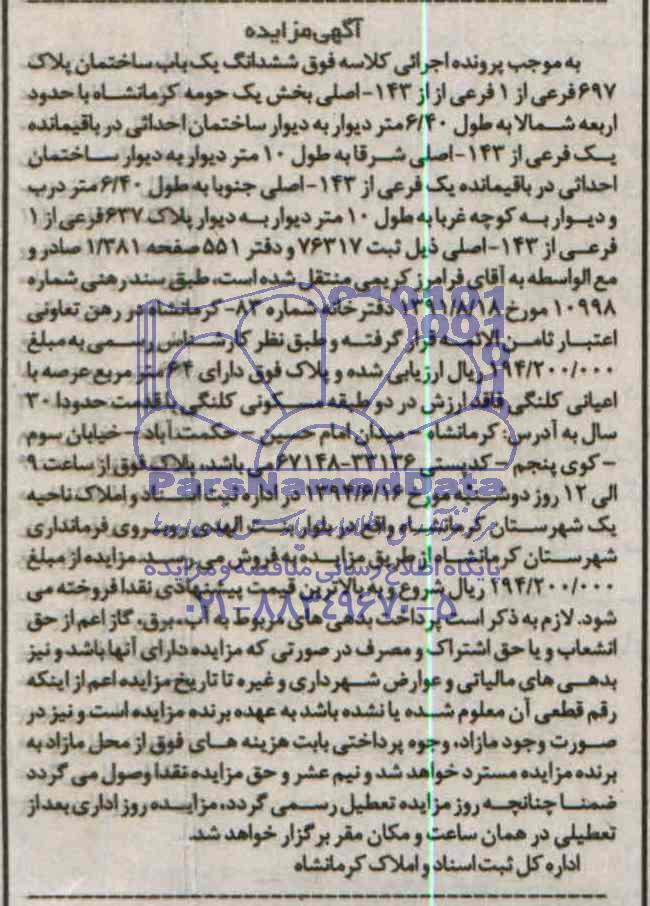 آگهی مزایده
به موجب پرونده اجرائی کلاسه فوق ششدانگ یک باب ساختمان پلاک
۶۹۷ فرعی از ۱ فرعی از از ۱۴۳- اصلی بخش یک حومه کرمانشاه با حدود
اربعه شمالا به طول ۶/۴۰ متر دیوار به دیوار ساختمان احداثی در باقیمانده
یک فرعی از ۱۴۳- اصلی شرقا به طول ۱۰ متر دیوار به دیوار ساختمان
احداثی در باقیمانده یک فرعی از ۱۴۳- اصلی جنوبا به طول ۶/۴۰ متر درب
و دیوار به کوچه غربا به طول ۱۰ متر دیوار به دیوار پلاک ۶۳۷ فرعی از ۱
فرعی از ۱۴۳- اصلی ذیل ثبت ۷۶۳۱۷ و دفتر ۵۵۱ صفحه ۱/۳۸۱ صادر و
مع الواسطه به آقای فرامرز کریمی منتقل شده است، طبق سند رهنی شماره
۱۰۹۹۸ مورخ ۱۳۹۱/۸/۱۸ دفترخانه شماره ۸۳- کرمانشاه در رهن تعاونی
اعتبار ثامن الائمه قرار گرفته و طبق نظر کارشناس رسمی به مبلغ
ریال ارزیابی شده و پلاک فوق دارای ۶۴ متر مربع عرصه با
اعیانی کلنگی فاقد ارزش در دو طبقه مسکونی کلنگی با قدمت حدودا ۳۰
سال به آدرس: کرمانشاه - میدان امام حسین - حکمت آباد - خیابان سوم
- کوی پنجم - کدپستی ۳۳۱۳۶-۶۷۱۴۸ می باشد، پلاک فوق از ساعت ۹
الی ۱۲ روز دوشنبه مورخ ۱۳۹۴/۶/۱۶ در اداره ثبت اسناد و املاک ناحیه
یک شهرستان کرمانشاه واقع در بلوار بنت الهدی روبروی فرمانداری
شهرستان کرمانشاه از طریق مزایده به فروش می رسد. مزایده از مبلغ
ریال شروع و به بالاترین قیمت پیشنهادی نقدا فروخته می
شود. لازم به ذکر است پرداخت بدهی های مربوط به آب، برق، گاز اعم از حق
انشعاب و یا حق اشتراک و مصرف در صورتی که مزایده دارای آنها باشد و نیز
بدهی های مالیاتی و عوارض شهرداری و غیره تا تاریخ مزایده اعم از اینکه
رقم قطعی آن معلوم شده یا نشده باشد به عهده برنده مزایده است و نیز در
صورت وجود مازاد، وجوه پرداختی بابت هزینه های فوق از محل مازاد به
برنده مزایده مسترد خواهد شد و نیم عشر و حق مزایده نقدا وصول می گردد
ضمنا چنانچه روز مزایده تعطیل رسمی گردد، مزایده روز اداری بعد از
تعطیلی در همان ساعت و مکان مقر برگزار خواهد شد.
اداره کل ثبت اسناد و املاک کرمانشاه
ParsNamadData
پایگاه اطلاع رسانی مناقصه و مزایده
۰۲۱-۸۸۳۴۹۶۷۰-۵